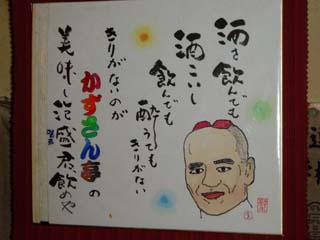 酒を飲んでも
酒こいし
飲んでも
酔うても
きりがない
きりがないのが
かずさん亭の
美味し泡盛 君、飲めや